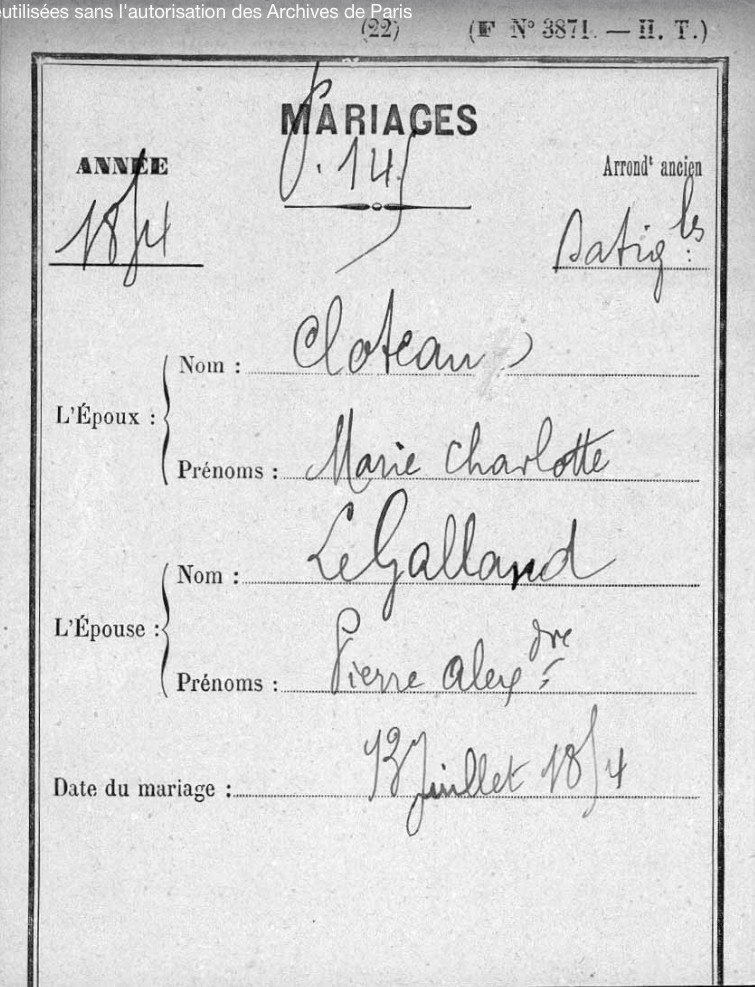 utilisées sans l'autorisation des Archives de Paris
(22) (F N° 3871. — H. T.)
MARIAGES
ANNÉE
P. 145
Arrondt ancien
1854
Batigles
L'Époux :
Nom : Cloteau
Prénoms : Marie Charlotte
L'Épouse :
Nom : Le Galland
Prénoms : Pierre Alexdre
Date du mariage : 13 Juillet 1854